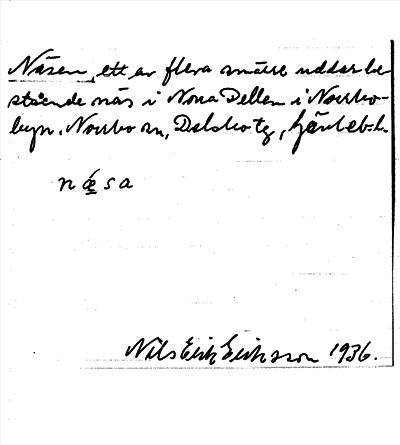 Näsen, ett av flera smärre uddar be-
stående näs i Norra Dellen i Norrbo-
byn. Norrbo sn, Delsbo tg, Gävleb. l.
næsa
Nils Erik Eriksson 1936.